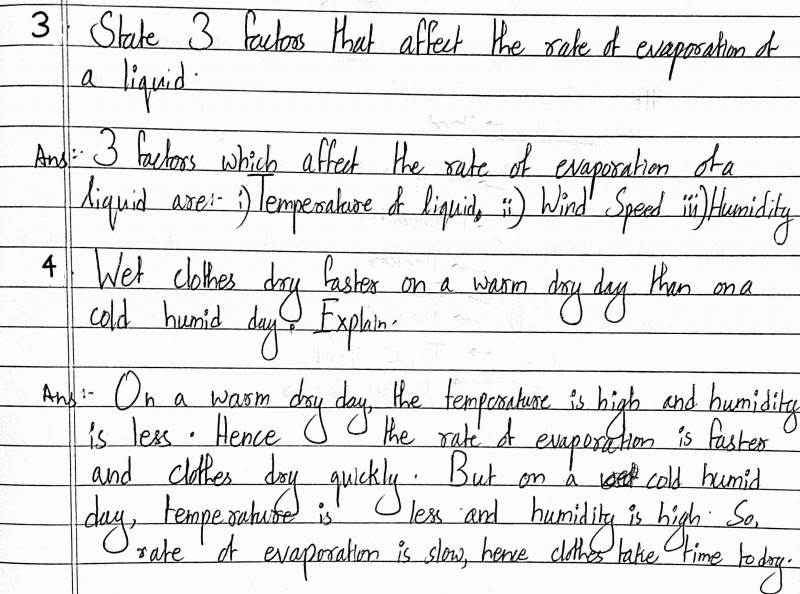 3. State 3 factors that affect the rate of evaporation of
a liquid.
Ans:- 3 factors which affect the rate of evaporation of a
liquid are:- i) Temperature of liquid, ii) Wind Speed iii) Humidity
4 Wet clothes dry faster on a warm dry day than on a
cold humid day. Explain.
Ans:- On a warm dry day, the temperature is high and humidity
is less. Hence the rate of evaporation is faster
and clothes dry quickly. But on a cold humid
day, temperature is less and humidity is high. So,
rate of evaporation is slow, hence clothes take time to dry.